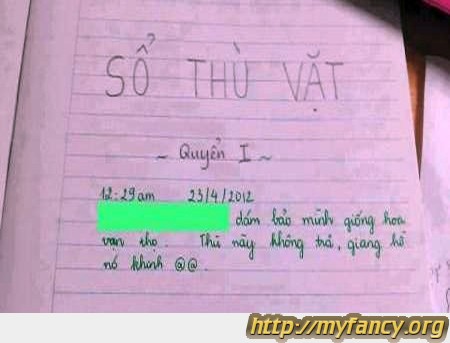 SỔ THÙ VẶT
~ Quyển I ~
12:29am 23/4/2012
dám bảo mình giống hoa
vạn thọ. Thù này không trả, giang hồ
nó khinh @@.
http://myfancy.org